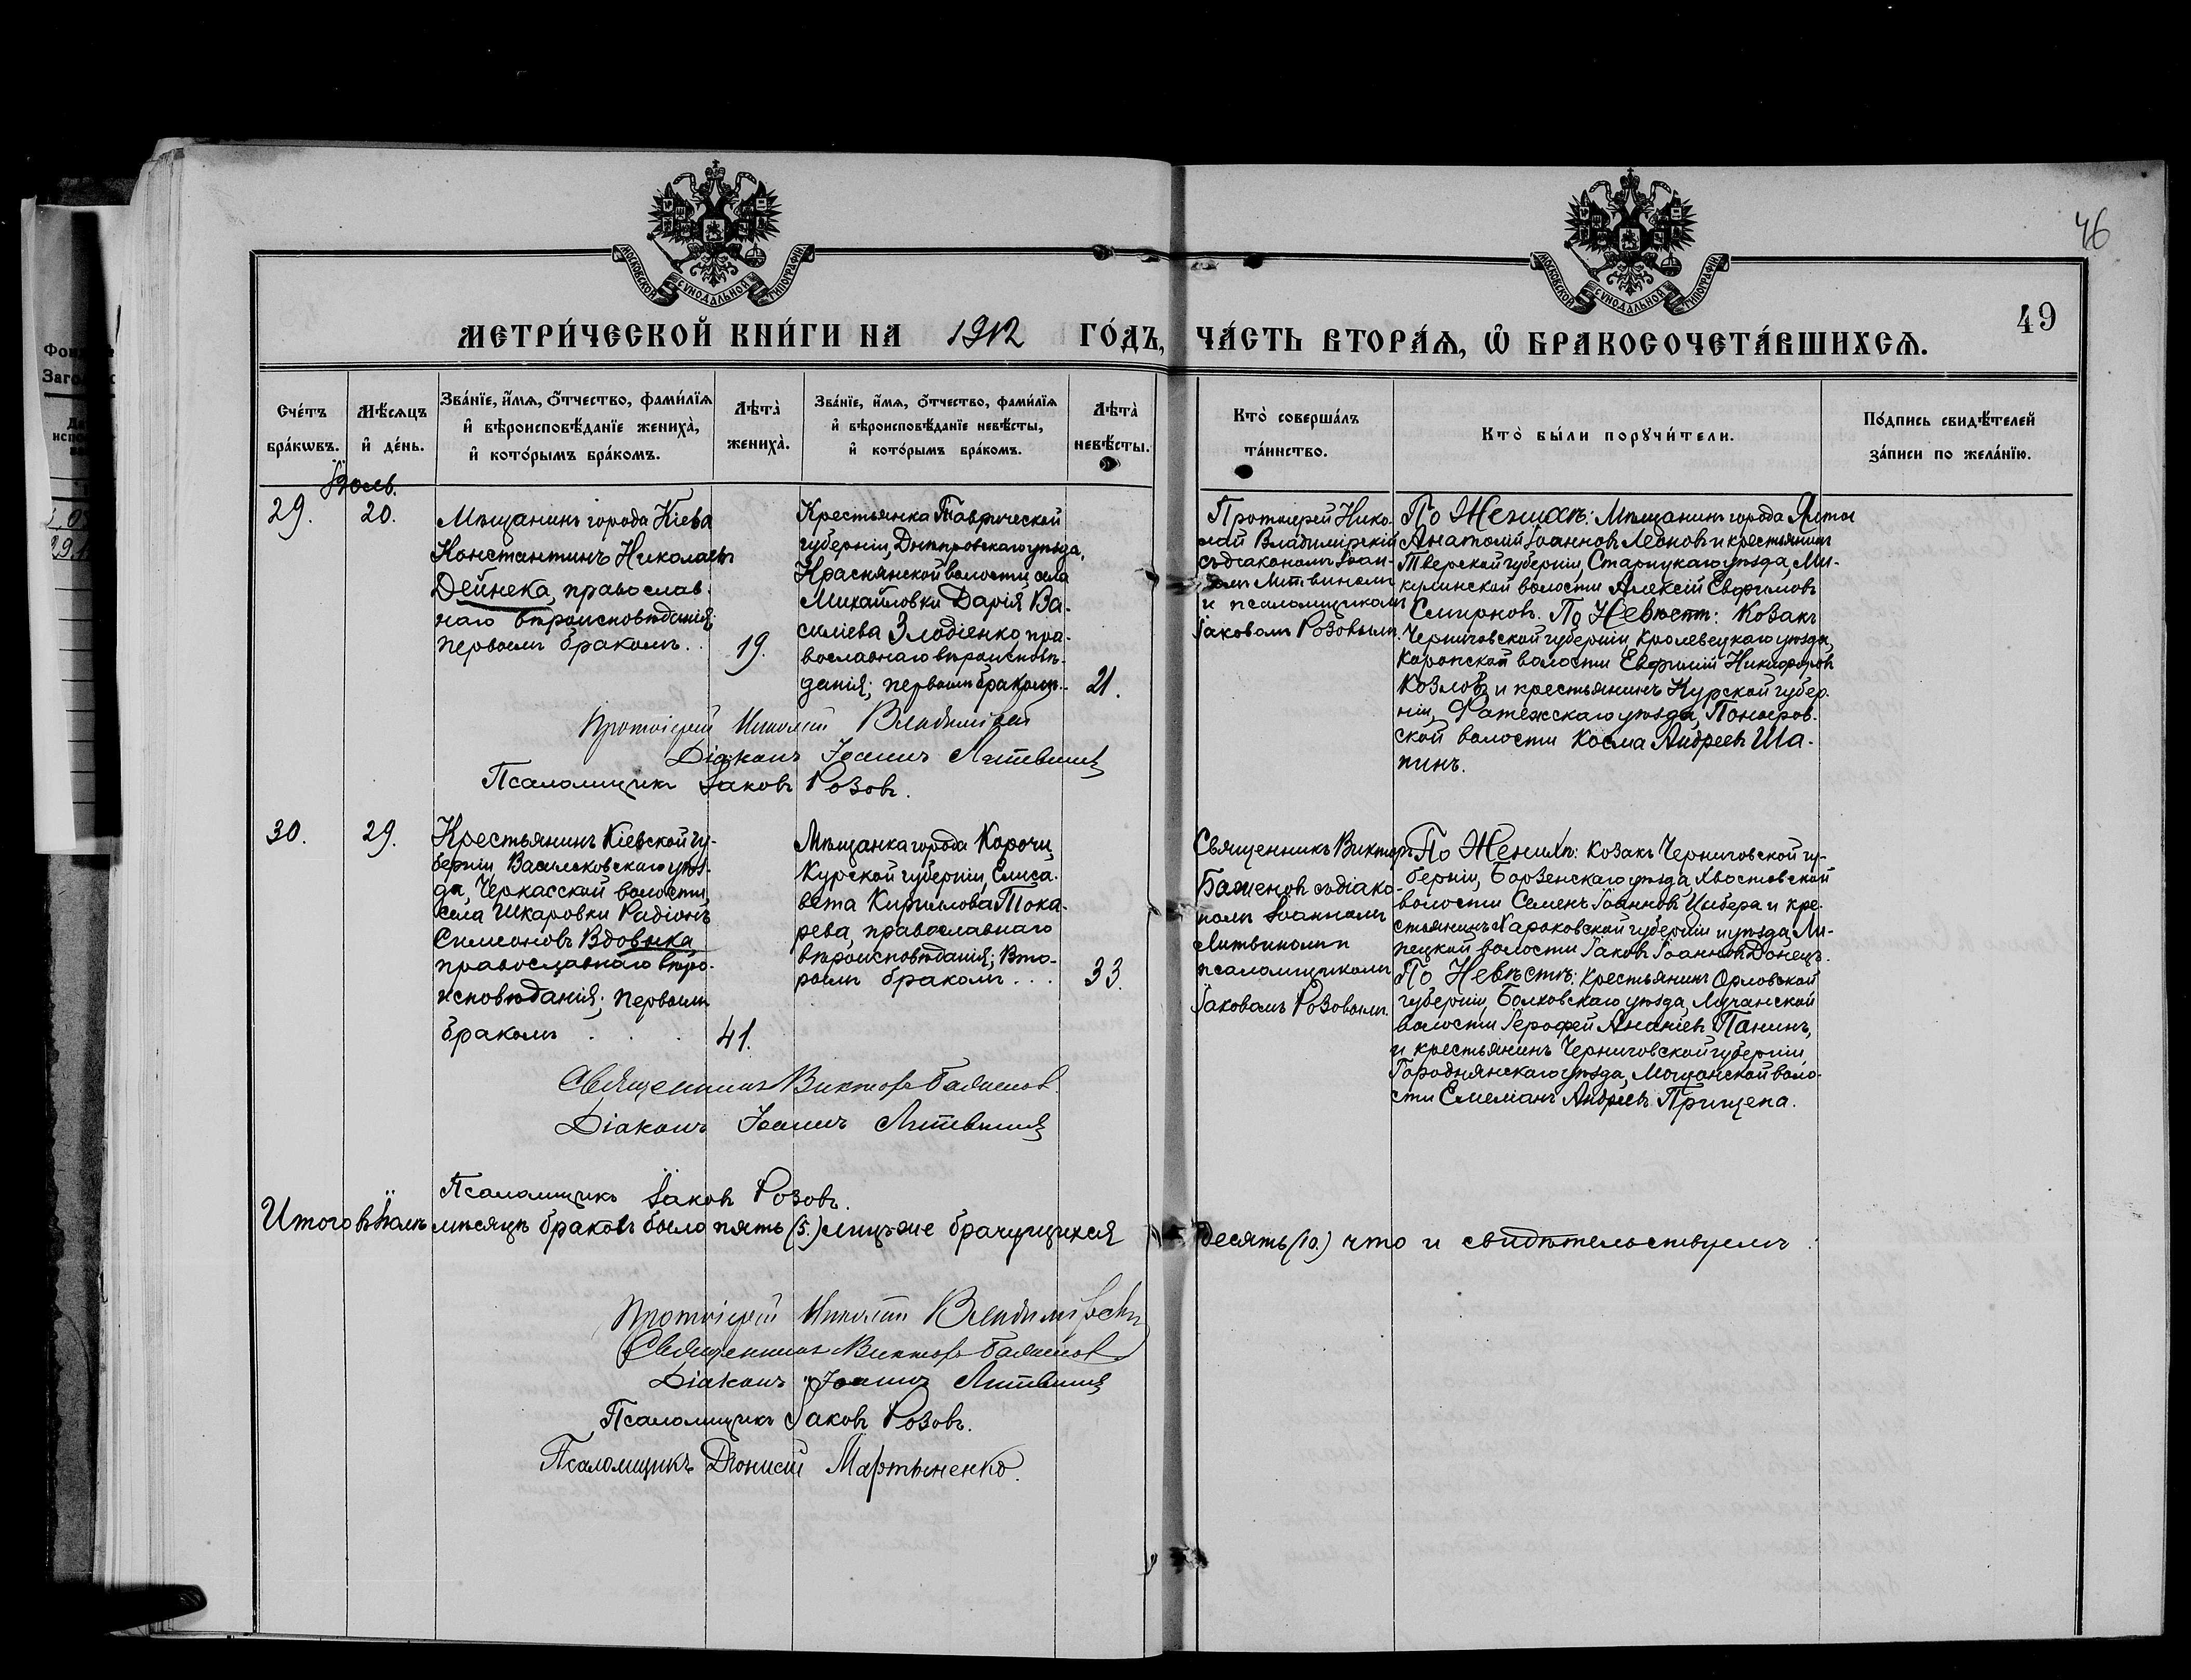 46
49
МОСКОВСКОЙ СѴНОДАЛЬНОЙ ТИПОГРАФІИ
МОСКОВСКОЙ СѴНОДАЛЬНОЙ ТИПОГРАФІИ
МЕТРИ́ЧЕСКОЙ КНИ́ГИ НА 1912 ГО́ДЪ, ЧА́СТЬ ВТОРА́Ѧ, Ѽ БРАКОСОЧЕТА́ВШИХСѦ.
Сче́тъ
бра́кѡвъ.
Мѣ́сѧцъ
и҆ де́нь.
Зва́нїе, и҆́мѧ, ѻ҆́тчество, фами́лїѧ
и҆ вѣроисповѣ́данїе жениха̀,
и҆ кото́рымъ бра́комъ.
Лѣта̀
жениха̀.
Зва́нїе, и҆́мѧ, ѻ҆́тчество, фами́лїѧ
и҆ вѣроисповѣ́данїе невѣ́сты,
и҆ кото́рымъ бра́комъ.
Лѣта̀
невѣ́сты.
Кто̀ соверша́лъ
та́инство.
Кто̀ бы́ли порꙋчи́тели.
По́дпись свидѣ́телей
за́писи по жела́нїю.
Іюль.
29.
20.
Мѣщанинъ города Кіева
Константинъ Николаевъ
Дейнека, православ-
наго вѣроисповѣданія;
первымъ бракомъ. .
19.
Крестьянка Таврической
губерніи, Днѣпровскаго уѣзда,
Краснянской волости, села
Михайловки Дарія Ва-
силіева Злодіенко, пра-
вославнаго вѣроисповѣ-
данія; первымъ бракомъ.
21.
Протоіерей Нико-
лай Владимірскій
съ діакономъ Іоан-
номъ Литвиномъ
и псаломщикомъ
Іаковомъ Розовымъ.
По Женихѣ: Мѣщанинъ города Ялты
Анатолій Іоанновъ Леоновъ и крестьянинъ
Тверской губерніи, Старицкаго уѣзда, Ми-
кулинской волости Алексій Евфимовъ
Смирновъ. По Невѣстѣ: Козакъ
Черниговской губерніи, Кролевецкаго уѣзда,
Коропской волости Евфимій Никифоровъ
Козловъ и крестьянинъ Курской губер-
ніи, Фатежскаго уѣзда, Поныров-
ской волости Косма Андреевъ Ша-
пинъ.
Протоіерей Николай Владимірскій
Діаконъ Іоаннъ Литвинъ
Псаломщикъ Іаковъ Розовъ.
30.
29.
Крестьянинъ Кіевской гу-
берніи, Васильковскаго уѣз-
да, Черкасской волости,
села Шкаровки Радіонъ
Симеоновъ Вдовыка,
православнаго вѣро-
исповѣданія; первымъ
бракомъ . . . .
41.
Мѣщанка города Корочи,
Курской губерніи, Елиса-
вета Кириллова Тока-
рева, православнаго
вѣроисповѣданія; вто-
рымъ бракомъ . . .
33.
Священникъ Викторъ
Баженовъ съ діако-
номъ Іоанномъ
Литвиномъ и
псаломщикомъ
Іаковомъ Розовымъ.
По Женихѣ: Козакъ Черниговской гу-
берніи, Борзенскаго уѣзда, Хвостовской
волости Семенъ Іоанновъ Цибера и кре-
стьянинъ Харьковской губерніи и уѣзда, Ли-
пецкой волости Іаковъ Іоанновъ Донецъ.
По Невѣстѣ: Крестьянинъ Орловской
губерніи, Болховскаго уѣзда, Лучанской
волости Іерофей Ананіевъ Панинъ,
и крестьянинъ Черниговской губерніи,
Городнянскаго уѣзда, волo-
сти Емеліанъ Андреевъ Прищепа.
Священникъ Викторъ Баженовъ.
Діаконъ Іоаннъ Литвинъ
Псаломщикъ Іаковъ Розовъ.
Итого въ Іюлѣ мѣсяцѣ браковъ было пять (5.) лицъ же брачущихся десять (10.) что и свидѣтельствуемъ:
Протоіерей Николай Владимірскій
Священникъ Викторъ Баженовъ
Діаконъ Іоаннъ Литвинъ
Псаломщикъ Іаковъ Розовъ.
Псаломщикъ Діонисій Мартыненко.